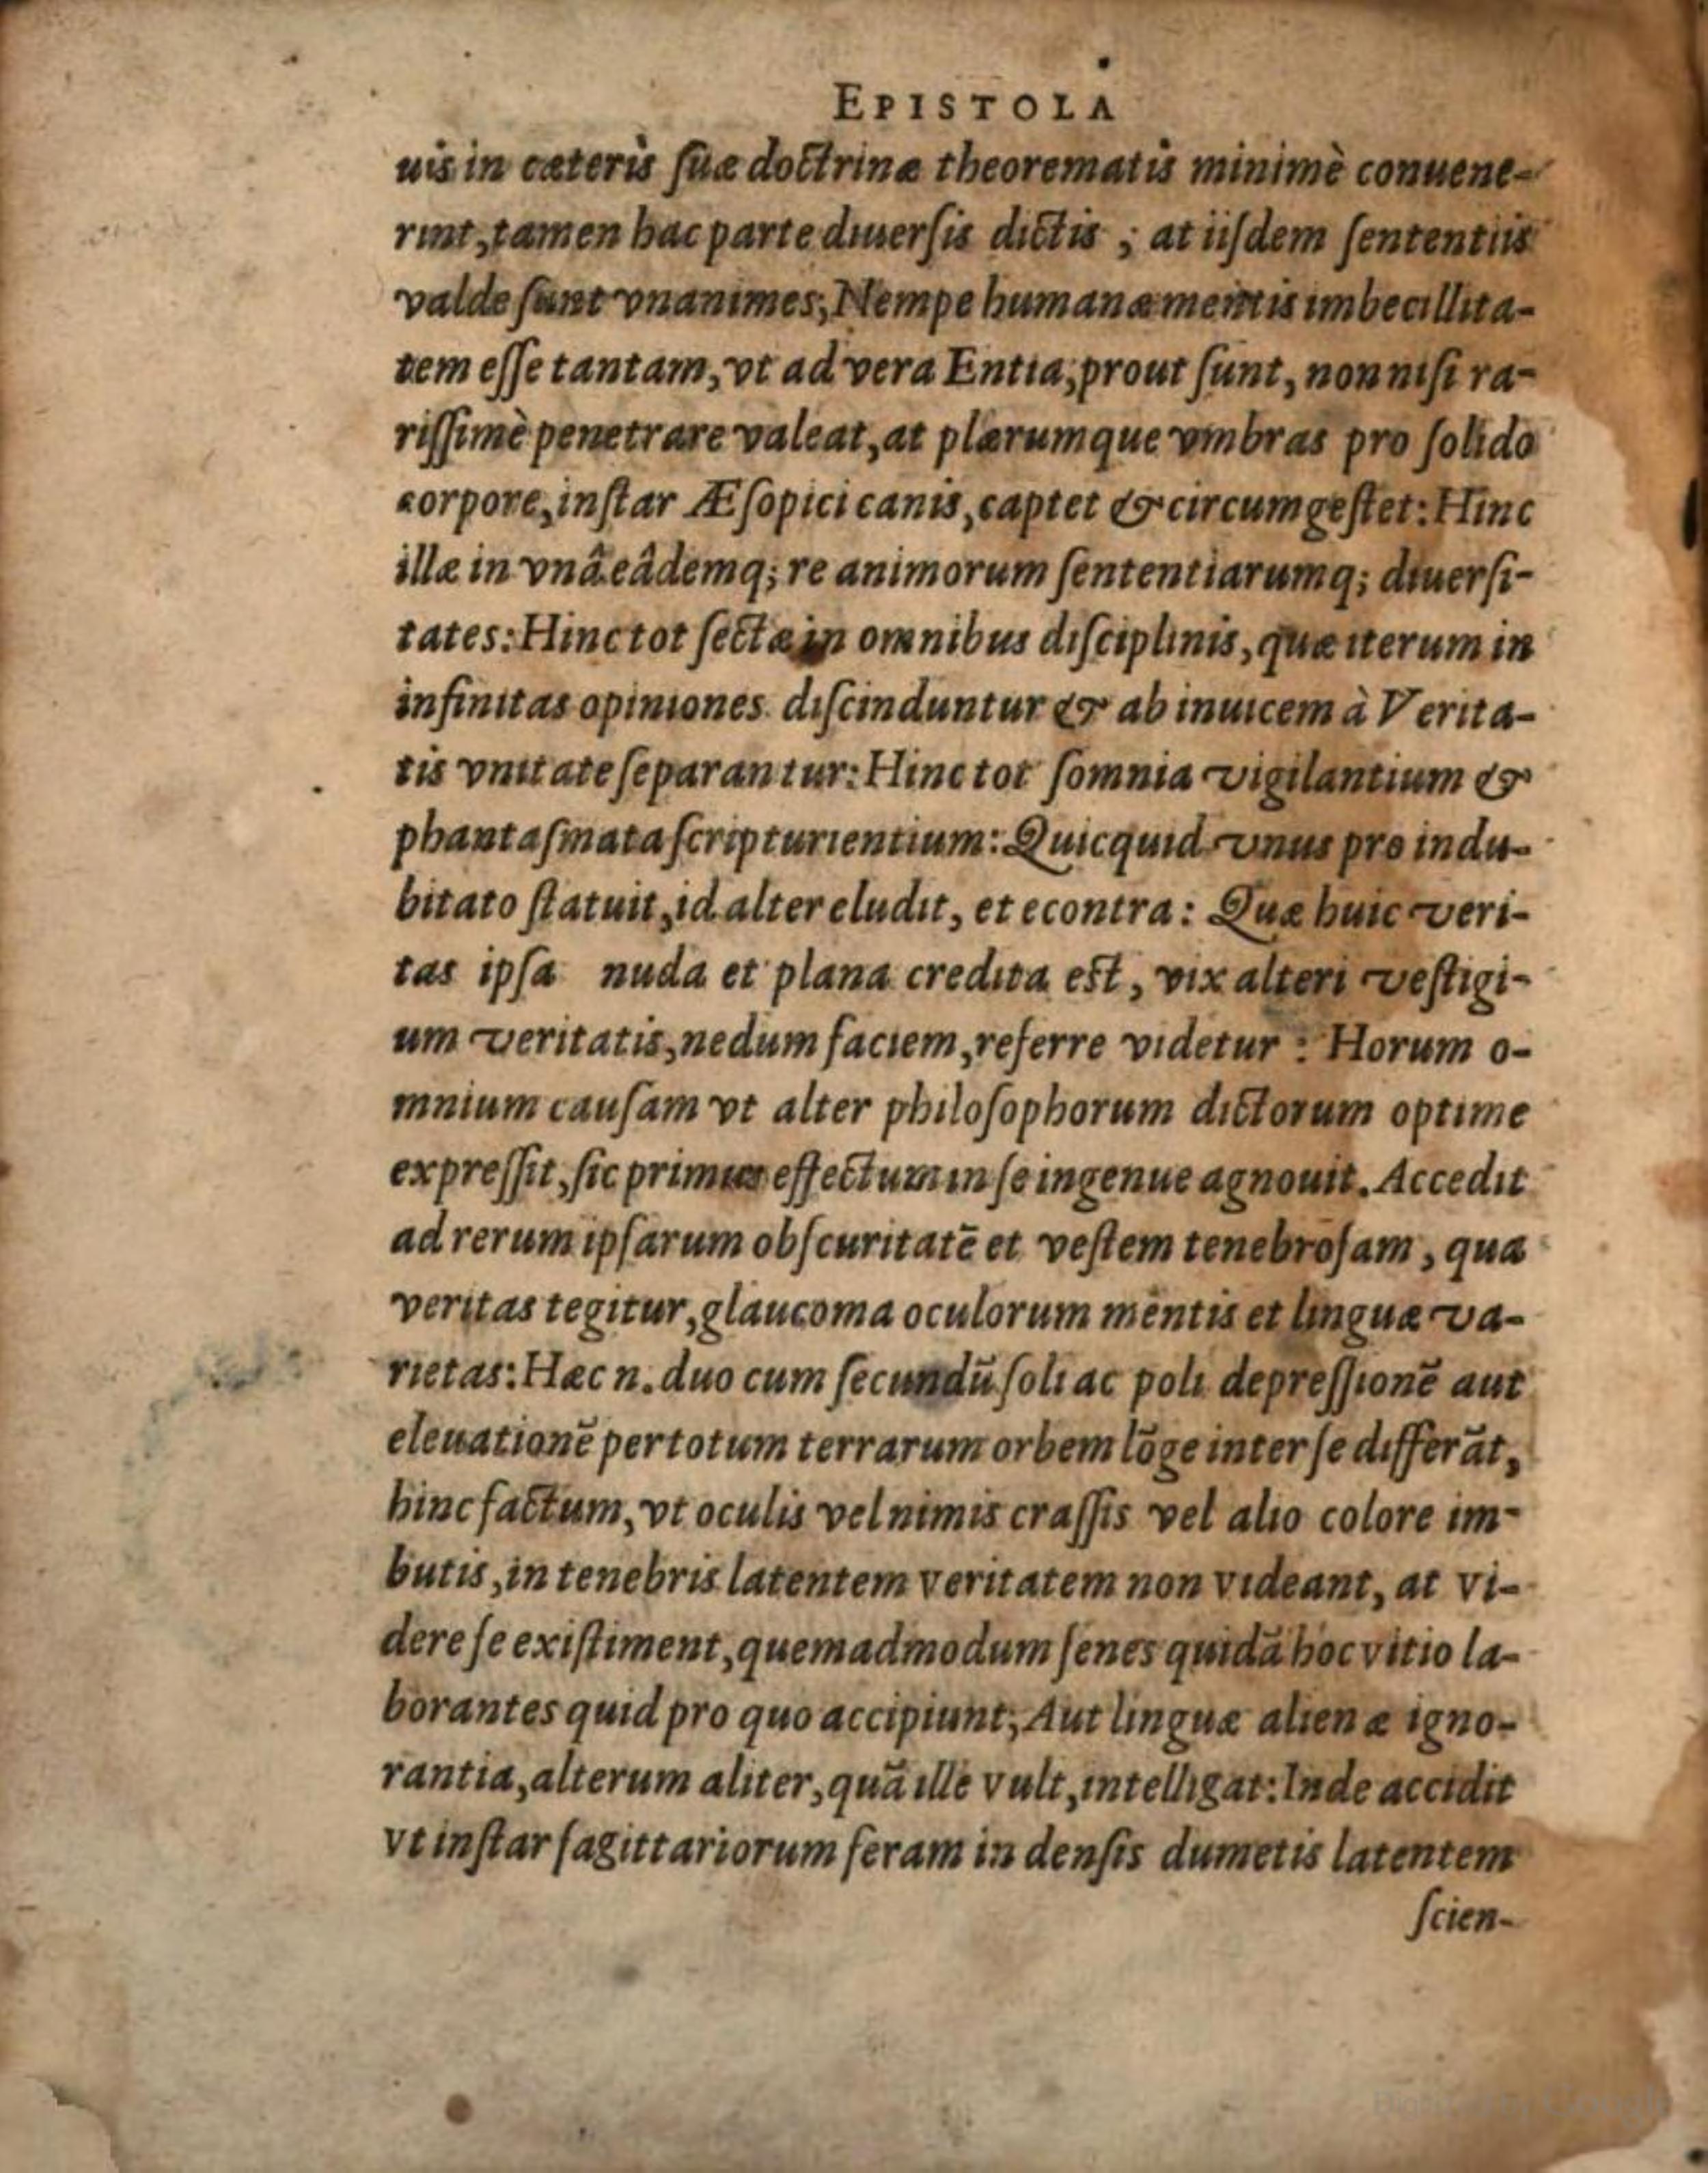 EPISTOLA
uis in cæteris ſuæ doctrinæ theorematis minimè conuene-
rint, tamen hac parte diuerſis dictis ; at iiſdem ſententiis
valde ſunt vnanimes; Nempe humanæ mentis imbecillita-
tem eſſe tantam, vt ad vera Entia, prout ſunt, non niſi ra-
riſſimè penetrare valeat, at plærumque vmbras pro ſolido
corpore, inſtar Æſopici canis, captet & circumgeſtet: Hinc
illæ in vnâ eâdemq; re animorum ſententiarumq; diuerſi-
tates: Hinc tot ſectæ in omnibus diſciplinis, quæ iterum in
infinitas opiniones diſcinduntur & ab inuicem à Verita-
tis vnitate ſeparantur: Hinc tot ſomnia vigilantium &
phantaſmata ſcripturientium: Quicquid vnus pro indu-
bitato ſtatuit, id alter eludit, et econtra: Quæ huic veri-
tas ipſa nuda et plana credita eſt, vix alteri veſtigi-
um veritatis, nedum faciem, referre videtur : Horum o-
mnium cauſam vt alter philoſophorum dictorum optime
expreſſit, ſic primus effectum in ſe ingenue agnouit. Accedit
ad rerum ipſarum obſcuritatē et veſtem tenebroſam, qua
veritas tegitur, glaucoma oculorum mentis et linguæ va-
rietas: Hæc n. duo cum ſecundũ ſoli ac poli depreſſionē aut
eleuationē per totum terrarum orbem lōge inter ſe differāt,
hinc factum, vt oculis vel nimis craſſis vel alio colore im-
butis, in tenebris latentem veritatem non videant, at vi-
dere ſe exiſtiment, quemadmodum ſenes quidā hoc vitio la-
borantes quid pro quo accipiunt; Aut linguæ alienæ igno-
rantia, alterum aliter, quā ille vult, intelligat: Inde accidit
vt inſtar ſagittariorum feram in denſis dumetis latentem
ſcien-
Digitized by Google